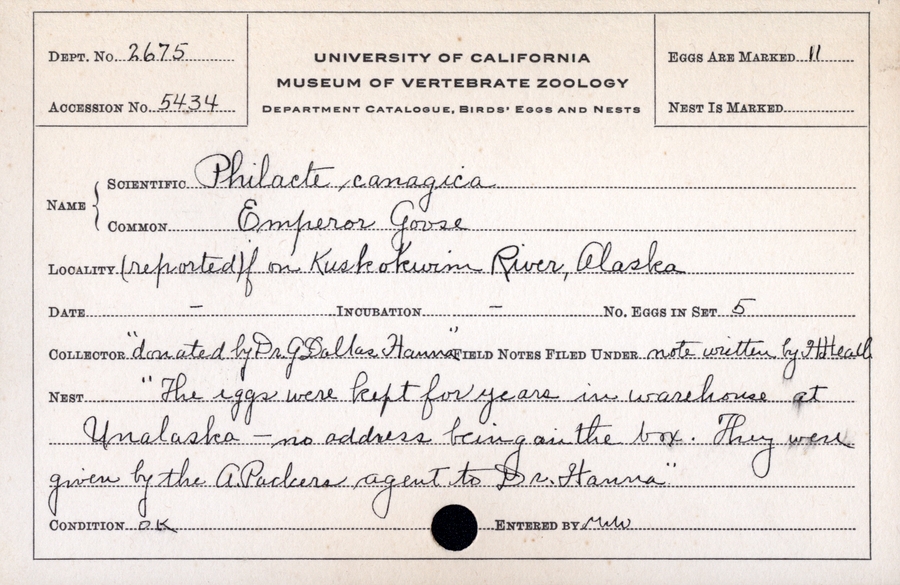 DEPT. NO. 2675
ACCESSION NO. 5434
UNIVERSITY OF CALIFORNIA
MUSEUM OF VERTEBRATE ZOOLOGY
DEPARTMENT CATALOGUE, BIRDS' EGGS AND NESTS
EGGS ARE MARKED 11
NEST IS MARKED
NAME
SCIENTIFIC Philacte canagica
COMMON Emperor Goose
LOCALITY (reported) on Kuskokwim River, Alaska
DATE – INCUBATION – NO. EGGS IN SET 5
COLLECTOR "donated by Dr. G Dallas Hanna" FIELD NOTES FILED UNDER note written by H Heath
NEST "The eggs were kept for years in warehouse at
Unalaska – no address being on the box. They were
given by the A. Packers agent to Dr. Hanna"
CONDITION OK ENTERED BY